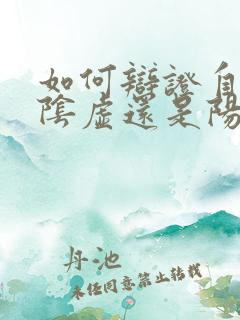 如何辯證自
陰虛還是陽
丹池
未經同意禁止轉載